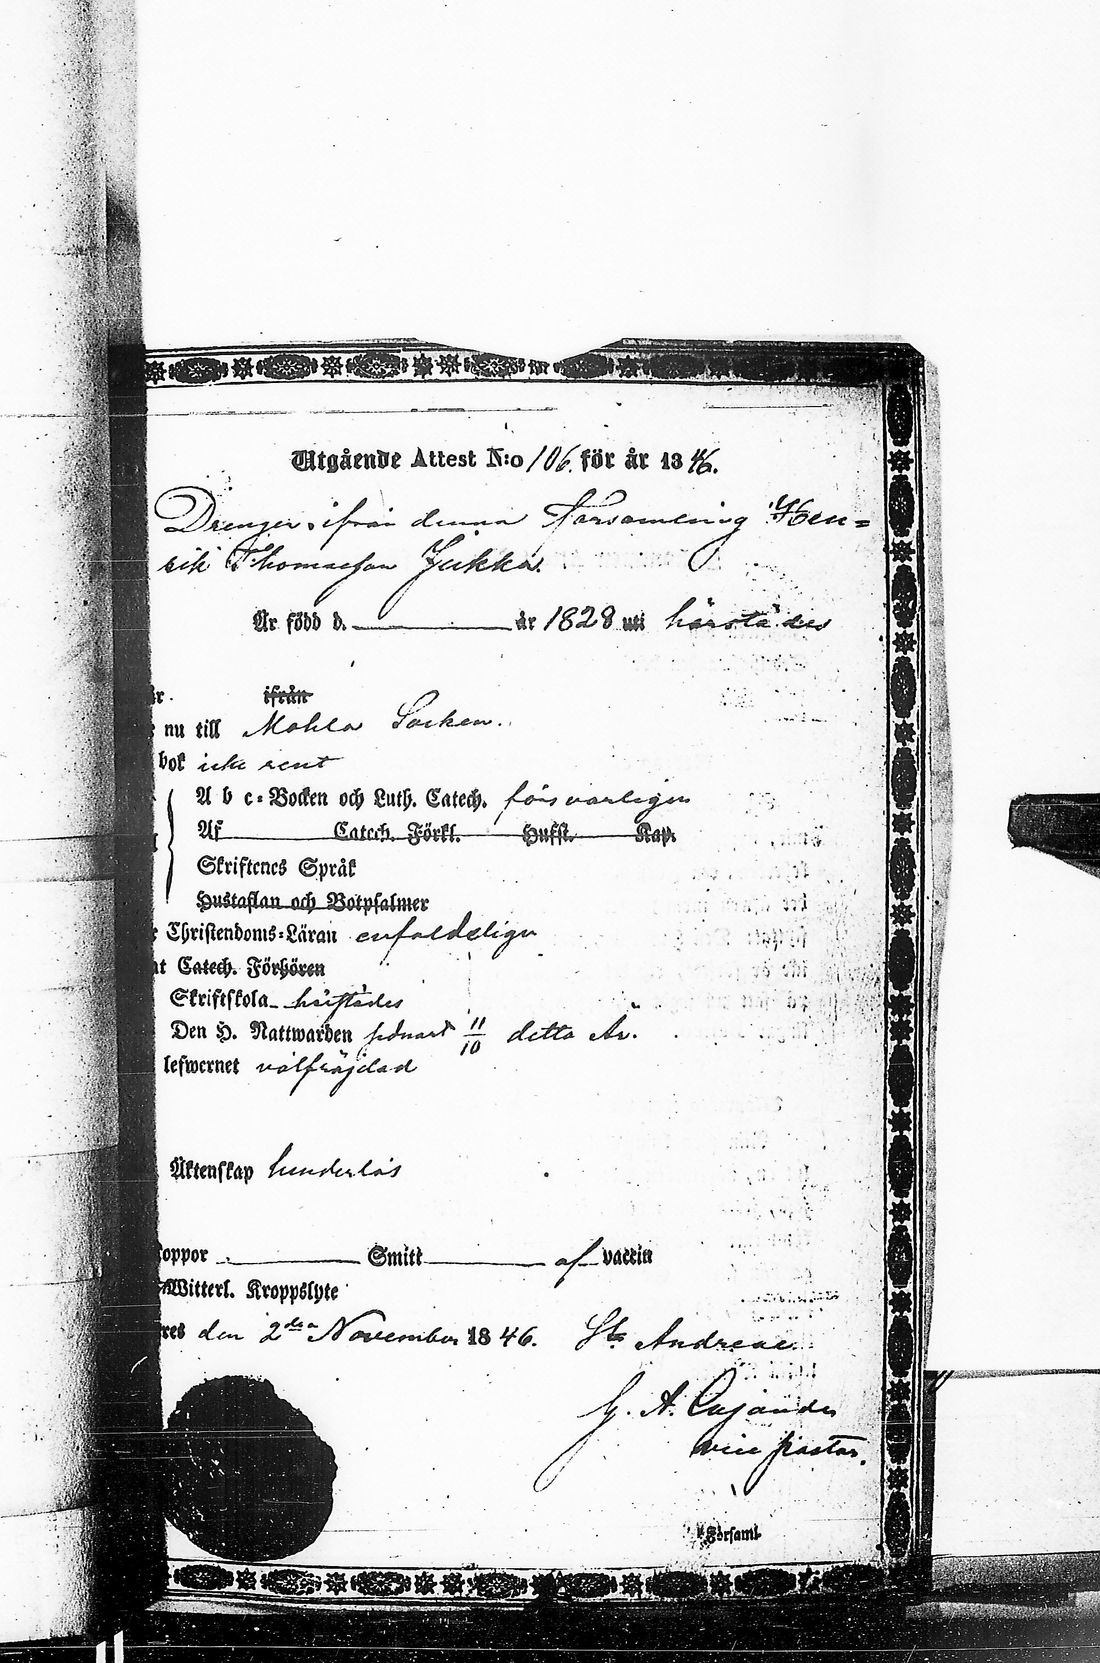 Utgående Attest N:o 106. för år 1846.
Drengen ifrån denna Församling Hen=
rik Thomasson Jukka.
Är född d. år 1828 uti härstädes
ifrån
nu till Mohla Socken.
bok icke rent
A b c=Bocken och Luth. Catech. försvarligen
Af Catech. Förkl. Husst. Kap.
Skriftenes Språk
Hustaflan och Botpsalmer
Christendoms=Läran enfaldeligen
Catech. Förhören
Skriftskola härstädes
Den H. Nattwarden sednast 11/10 detta År.
lefwernet välfräjdad
Äktenskap hinderlös
koppor Smitt af vaccin
Witterl. Kroppslyte
den 2den November 1846. St. Andreae
G. A. Cajander
vice pastor.
Församl.